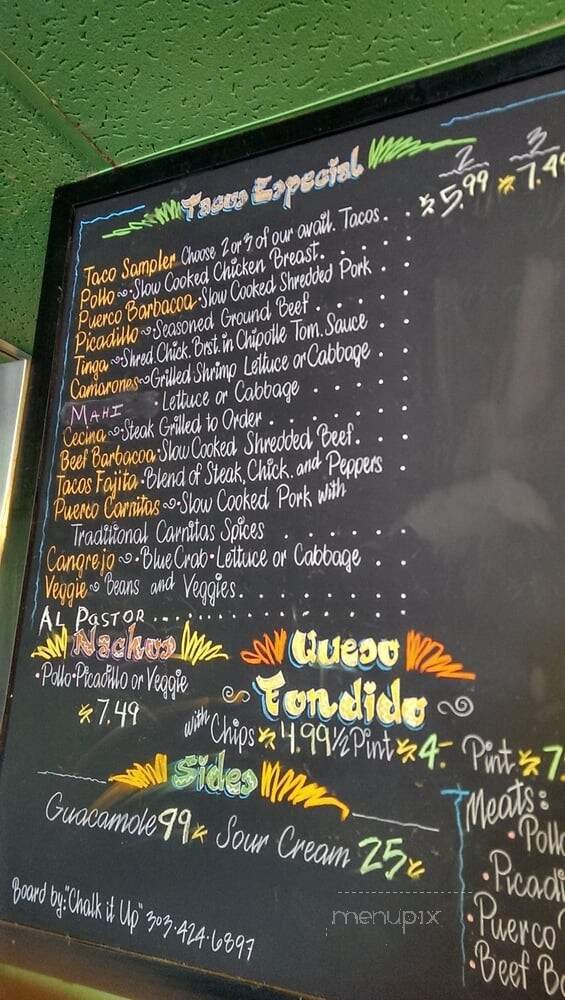 Tacos Especial
2 3
$5.99 $7.49
Taco Sampler Choose 2 or 3 of our avail. Tacos. . .
Pollo ~ Slow Cooked Chicken Breast. . . . . .
Puerco Barbacoa • Slow Cooked Shredded Pork . .
Picadillo ~ Seasoned Ground Beef . . . . . .
Tinga ~ Shred Chick. Brst. in Chipotle Tom. Sauce . .
Camarones ~ Grilled Shrimp Lettuce or Cabbage . .
MAHI • Lettuce or Cabbage . . . . . .
Cecina ~ Steak Grilled to Order . . . . . . . .
Beef Barbacoa • Slow Cooked Shredded Beef. . . .
Tacos Fajita • Blend of Steak, Chick. and Peppers .
Puerco Carnitas ~ Slow Cooked Pork with
Traditional Carnitas Spices . . . . . . .
Cangrejo ~ • Blue Crab • Lettuce or Cabbage . . .
Veggie ~ Beans and Veggies. . . . . . . . . .
AL PASTOR . . . . . . . . . . . . . . . . . .
Nachos
• Pollo • Picadillo or Veggie
$7.49
Queso
Fondido
with Chips $4.99 1/2 Pint $4.- Pint $7.
Sides
Guacamole 99¢ Sour Cream 25¢
Meats:
• Pollo
• Picadi
• Puerco
• Beef Ba
Board by: "Chalk it Up" 303•424•6897
menupix